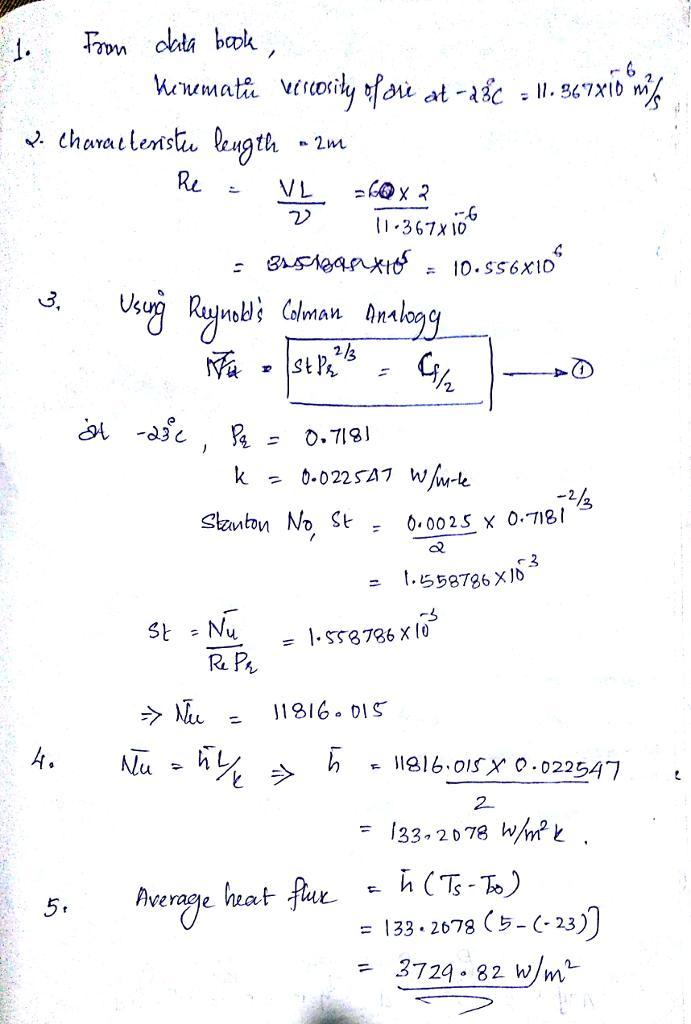 1. From data book,
Kinematic viscosity of air at -23°C = 11.367x10^-6 m²/s
2. Characteristic length = 2m
Re = VL/ν = 60 x 2 / 11.367x10^-6
= 10.556x10^6
3. Using Reynold's Colman Analogy
St Pr^2/3 = Cf/2 → ①
at -23°C, Pr = 0.7181
k = 0.022547 W/m-k
Stanton No, St = 0.0025/2 x 0.7181^-2/3
= 1.558786x10^-3
St = N̄u/Re Pr = 1.558786x10^-3
⇒ N̄u = 11816.015
4. N̄u = h̄L/k ⇒ h̄ = 11816.015 x 0.022547 / 2
= 133.2078 W/m²k.
5. Average heat flux = h̄ (Ts-T∞)
= 133.2078 (5-(-23)]
= 3729.82 W/m²